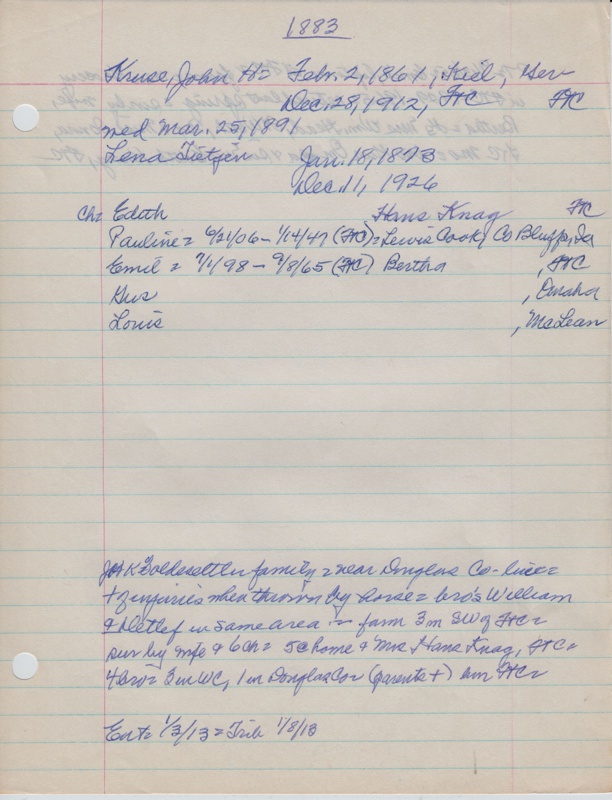 1883
Kruse, John H = Febr. 2, 1861, Kiel, Ger
Dec. 28, 1912, FC FC
med Mar. 25, 1891
Lena Tietjen Jan. 18, 1873
Dec. 11, 1926
Ch = Edith Hans Knag FC
Pauline = 6/21/06 - 1/14/47 (FC) = Lewis Cook, Co Bluffs, Ia
Emil = 7/1/98 - 9/8/65 (FC) Bertha , FC
Gus , Omaha
Louis , McLean
JHK older settler family = near Douglas Co - line =
+ injuries when thrown by horse = bro's William
& Detlef in same area = farm 3 m SW of FC =
sur by wife & 6 ch = 5 @ home & Mrs Hans Knag, FC =
4 bro = 3 in WC, 1 in Douglas Co = (parents +) FC =
Ent = 1/3/13 = Trib 1/8/13